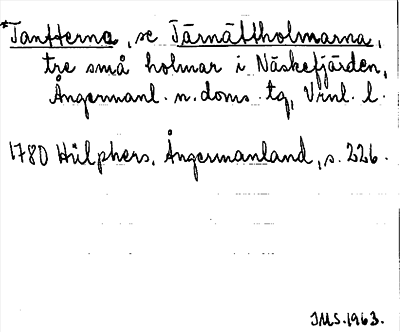 *Tantterna, se Tärnättholmarna,
tre små holmar i Näskefjärden,
Ångermanl. n. doms. tg, Vrnl. l.
1780 Hülphers, Ångermanland, s. 226.
JMS. 1963.